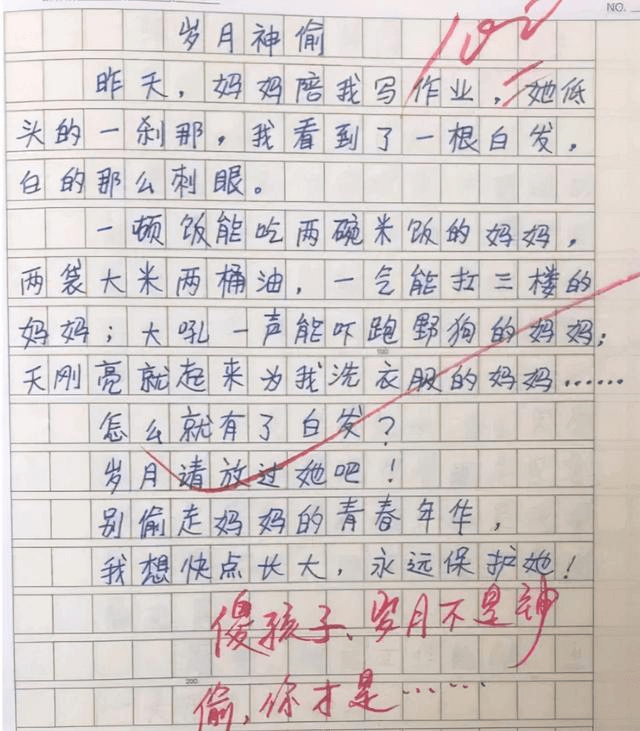 NO.
岁月神偷
100
昨天，妈妈陪我写作业，她低
头的一刹那，我看到了一根白发，
白的那么刺眼。
一顿饭能吃两碗米饭的妈妈，
两袋大米两桶油，一气能扛三楼的
妈妈；大吼一声能吓跑野狗的妈妈；
100
天刚亮就起来为我洗衣服的妈妈……
怎么就有了白发？
岁月请放过她吧！
别偷走妈妈的青春年华，
我想快点长大，永远保护她！
傻孩子、岁月不是神
200
偷，你才是……